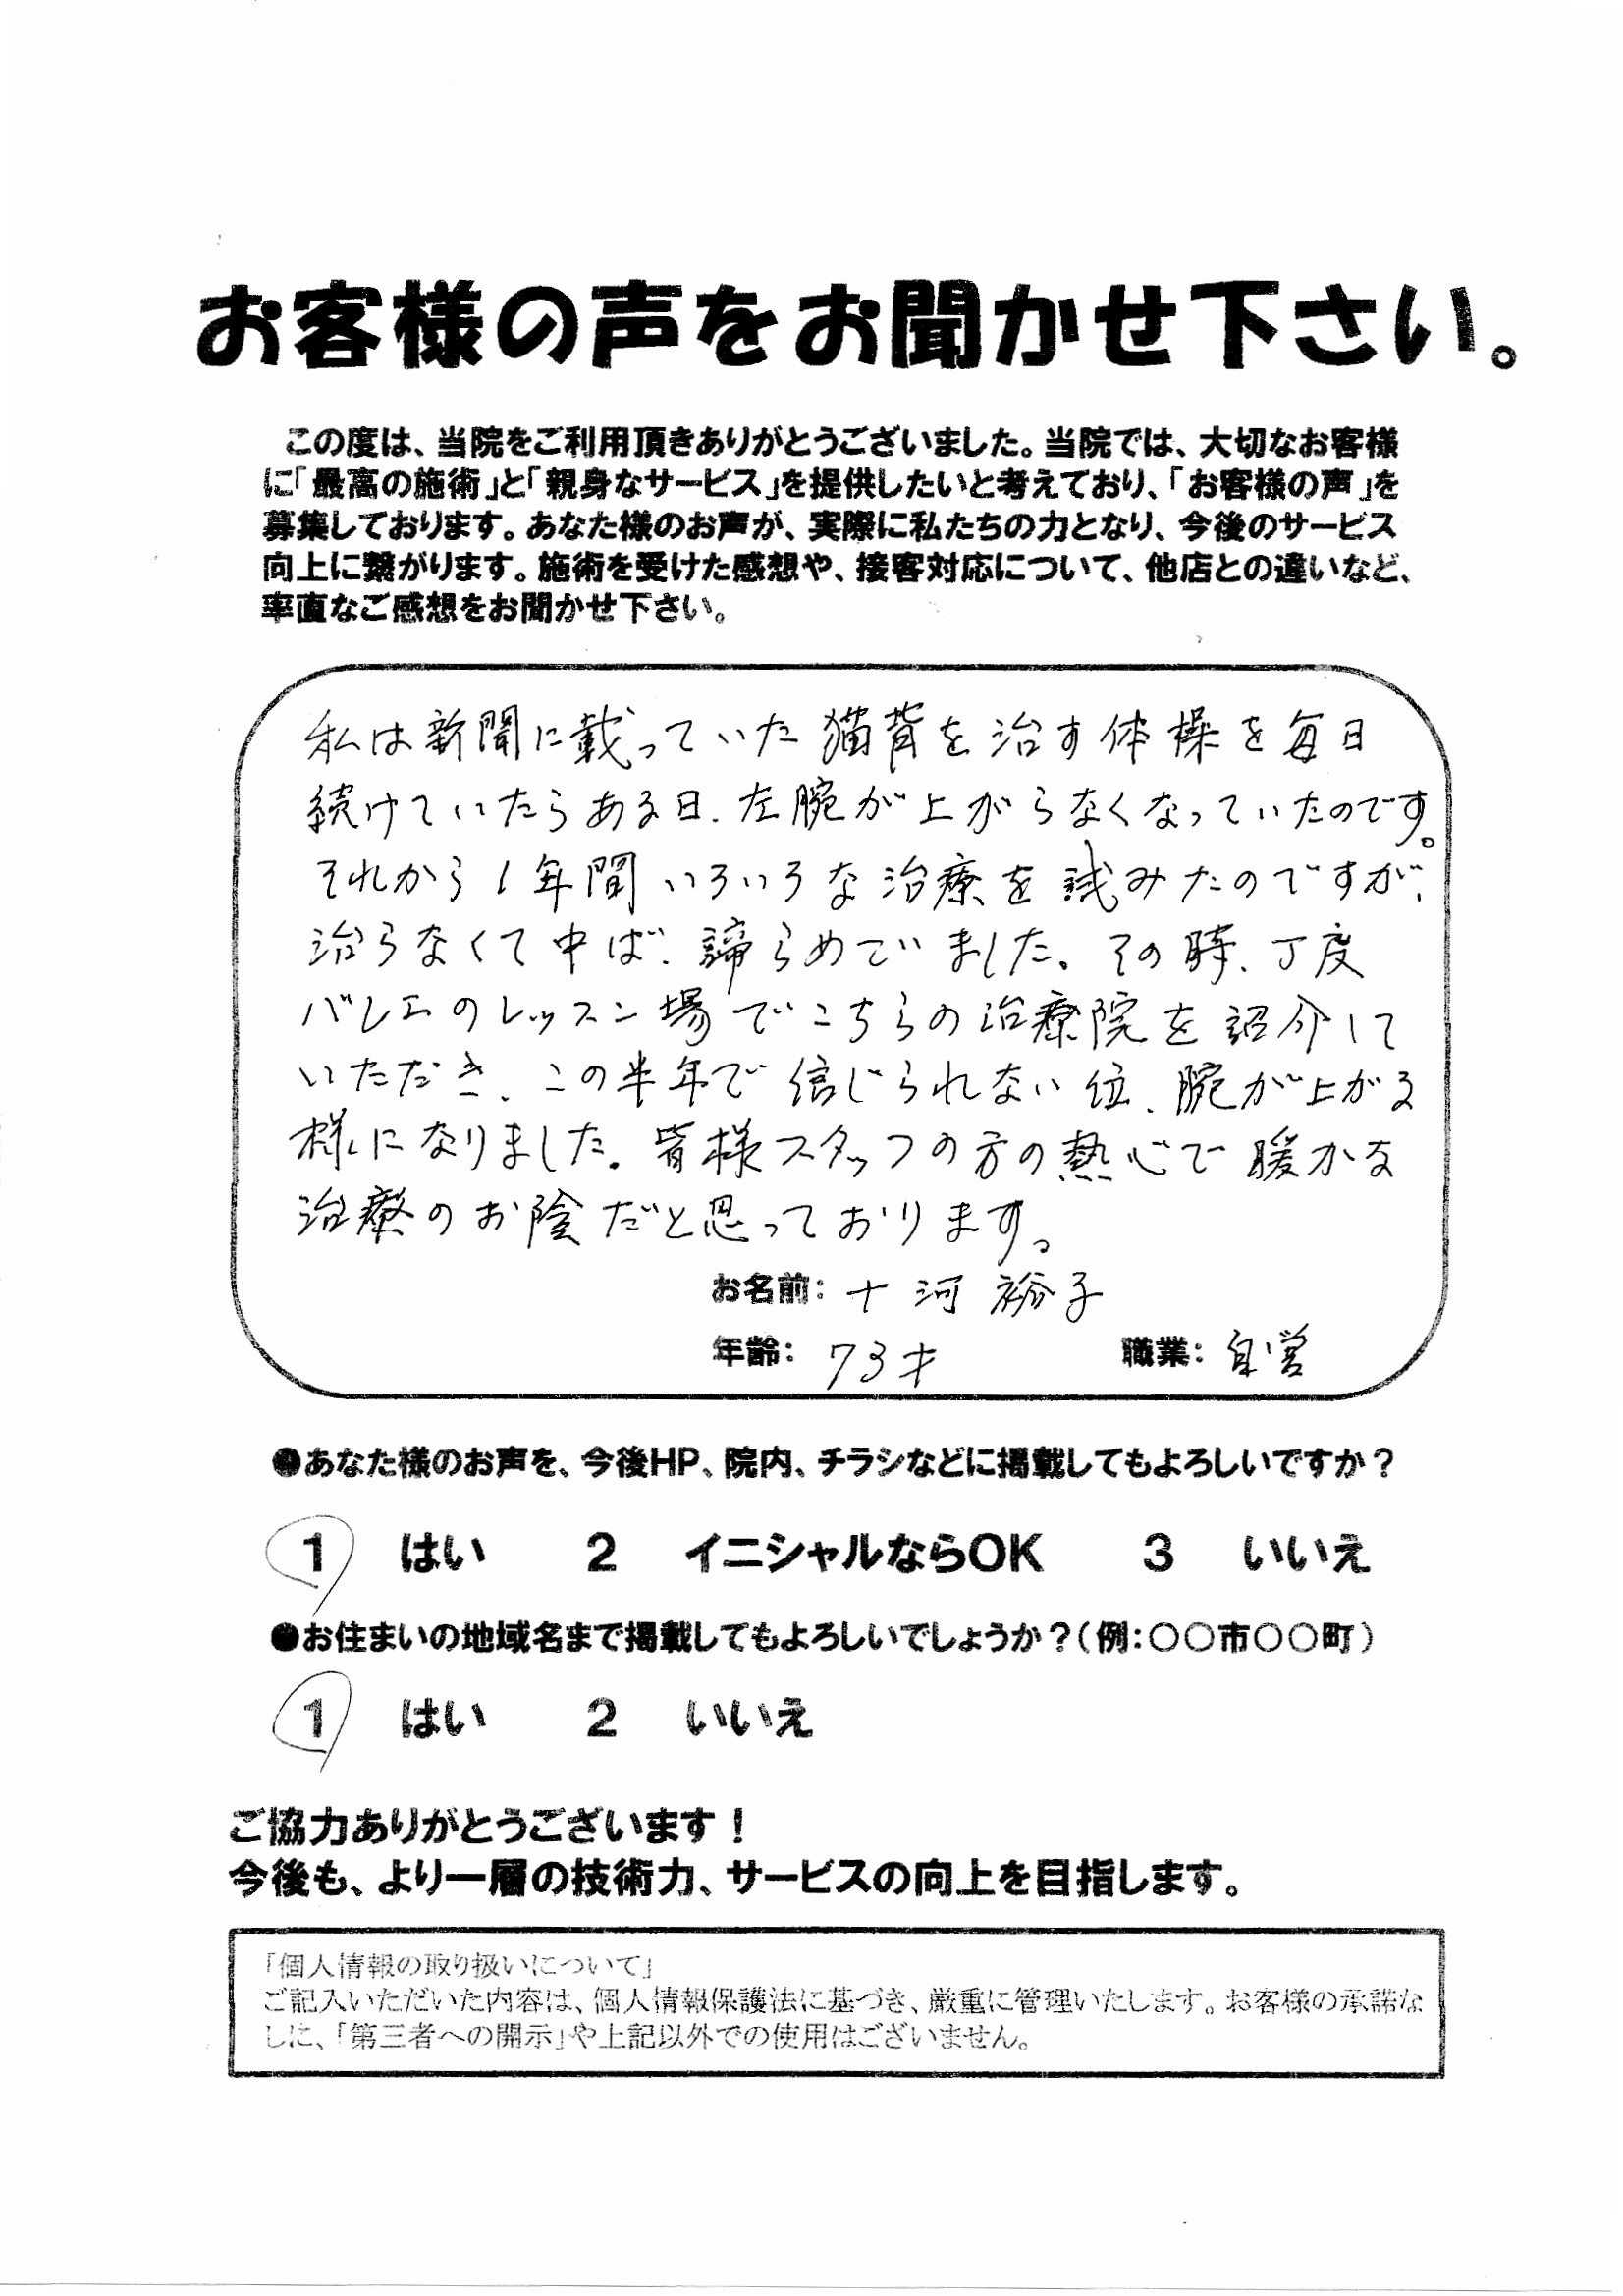 お客様の声をお聞かせ下さい。
この度は、当院をご利用頂きありがとうございました。当院では、大切なお客様
に「最高の施術」と「親身なサービス」を提供したいと考えており、「お客様の声」を
募集しております。あなた様のお声が、実際に私たちの力となり、今後のサービス
向上に繋がります。施術を受けた感想や、接客対応について、他店との違いなど、
率直なご感想をお聞かせ下さい。
私は新聞に載っていた猫背を治す体操を毎日
続けていたらある日、左腕が上がらなくなっていたのです。
それから1年間いろいろな治療を試みたのですが、
治らなくて中ば、諦らめていました。その時、丁度
バレエのレッスン場でこちらの治療院を紹介して
いただき、この半年で信じられない位、腕が上がる
様になりました。皆様スタッフの方の熱心で暖かな
治療のお陰だと思っております。
お名前：十河 裕子
年齢：73才 職業：自営
●あなた様のお声を、今後HP、院内、チラシなどに掲載してもよろしいですか？
1 はい 2 イニシャルならOK 3 いいえ
●お住まいの地域名まで掲載してもよろしいでしょうか？（例：○○市○○町）
1 はい 2 いいえ
ご協力ありがとうございます！
今後も、より一層の技術力、サービスの向上を目指します。
「個人情報の取り扱いについて」
ご記入いただいた内容は、個人情報保護法に基づき、厳重に管理いたします。お客様の承諾な
しに、「第三者への開示」や上記以外での使用はございません。